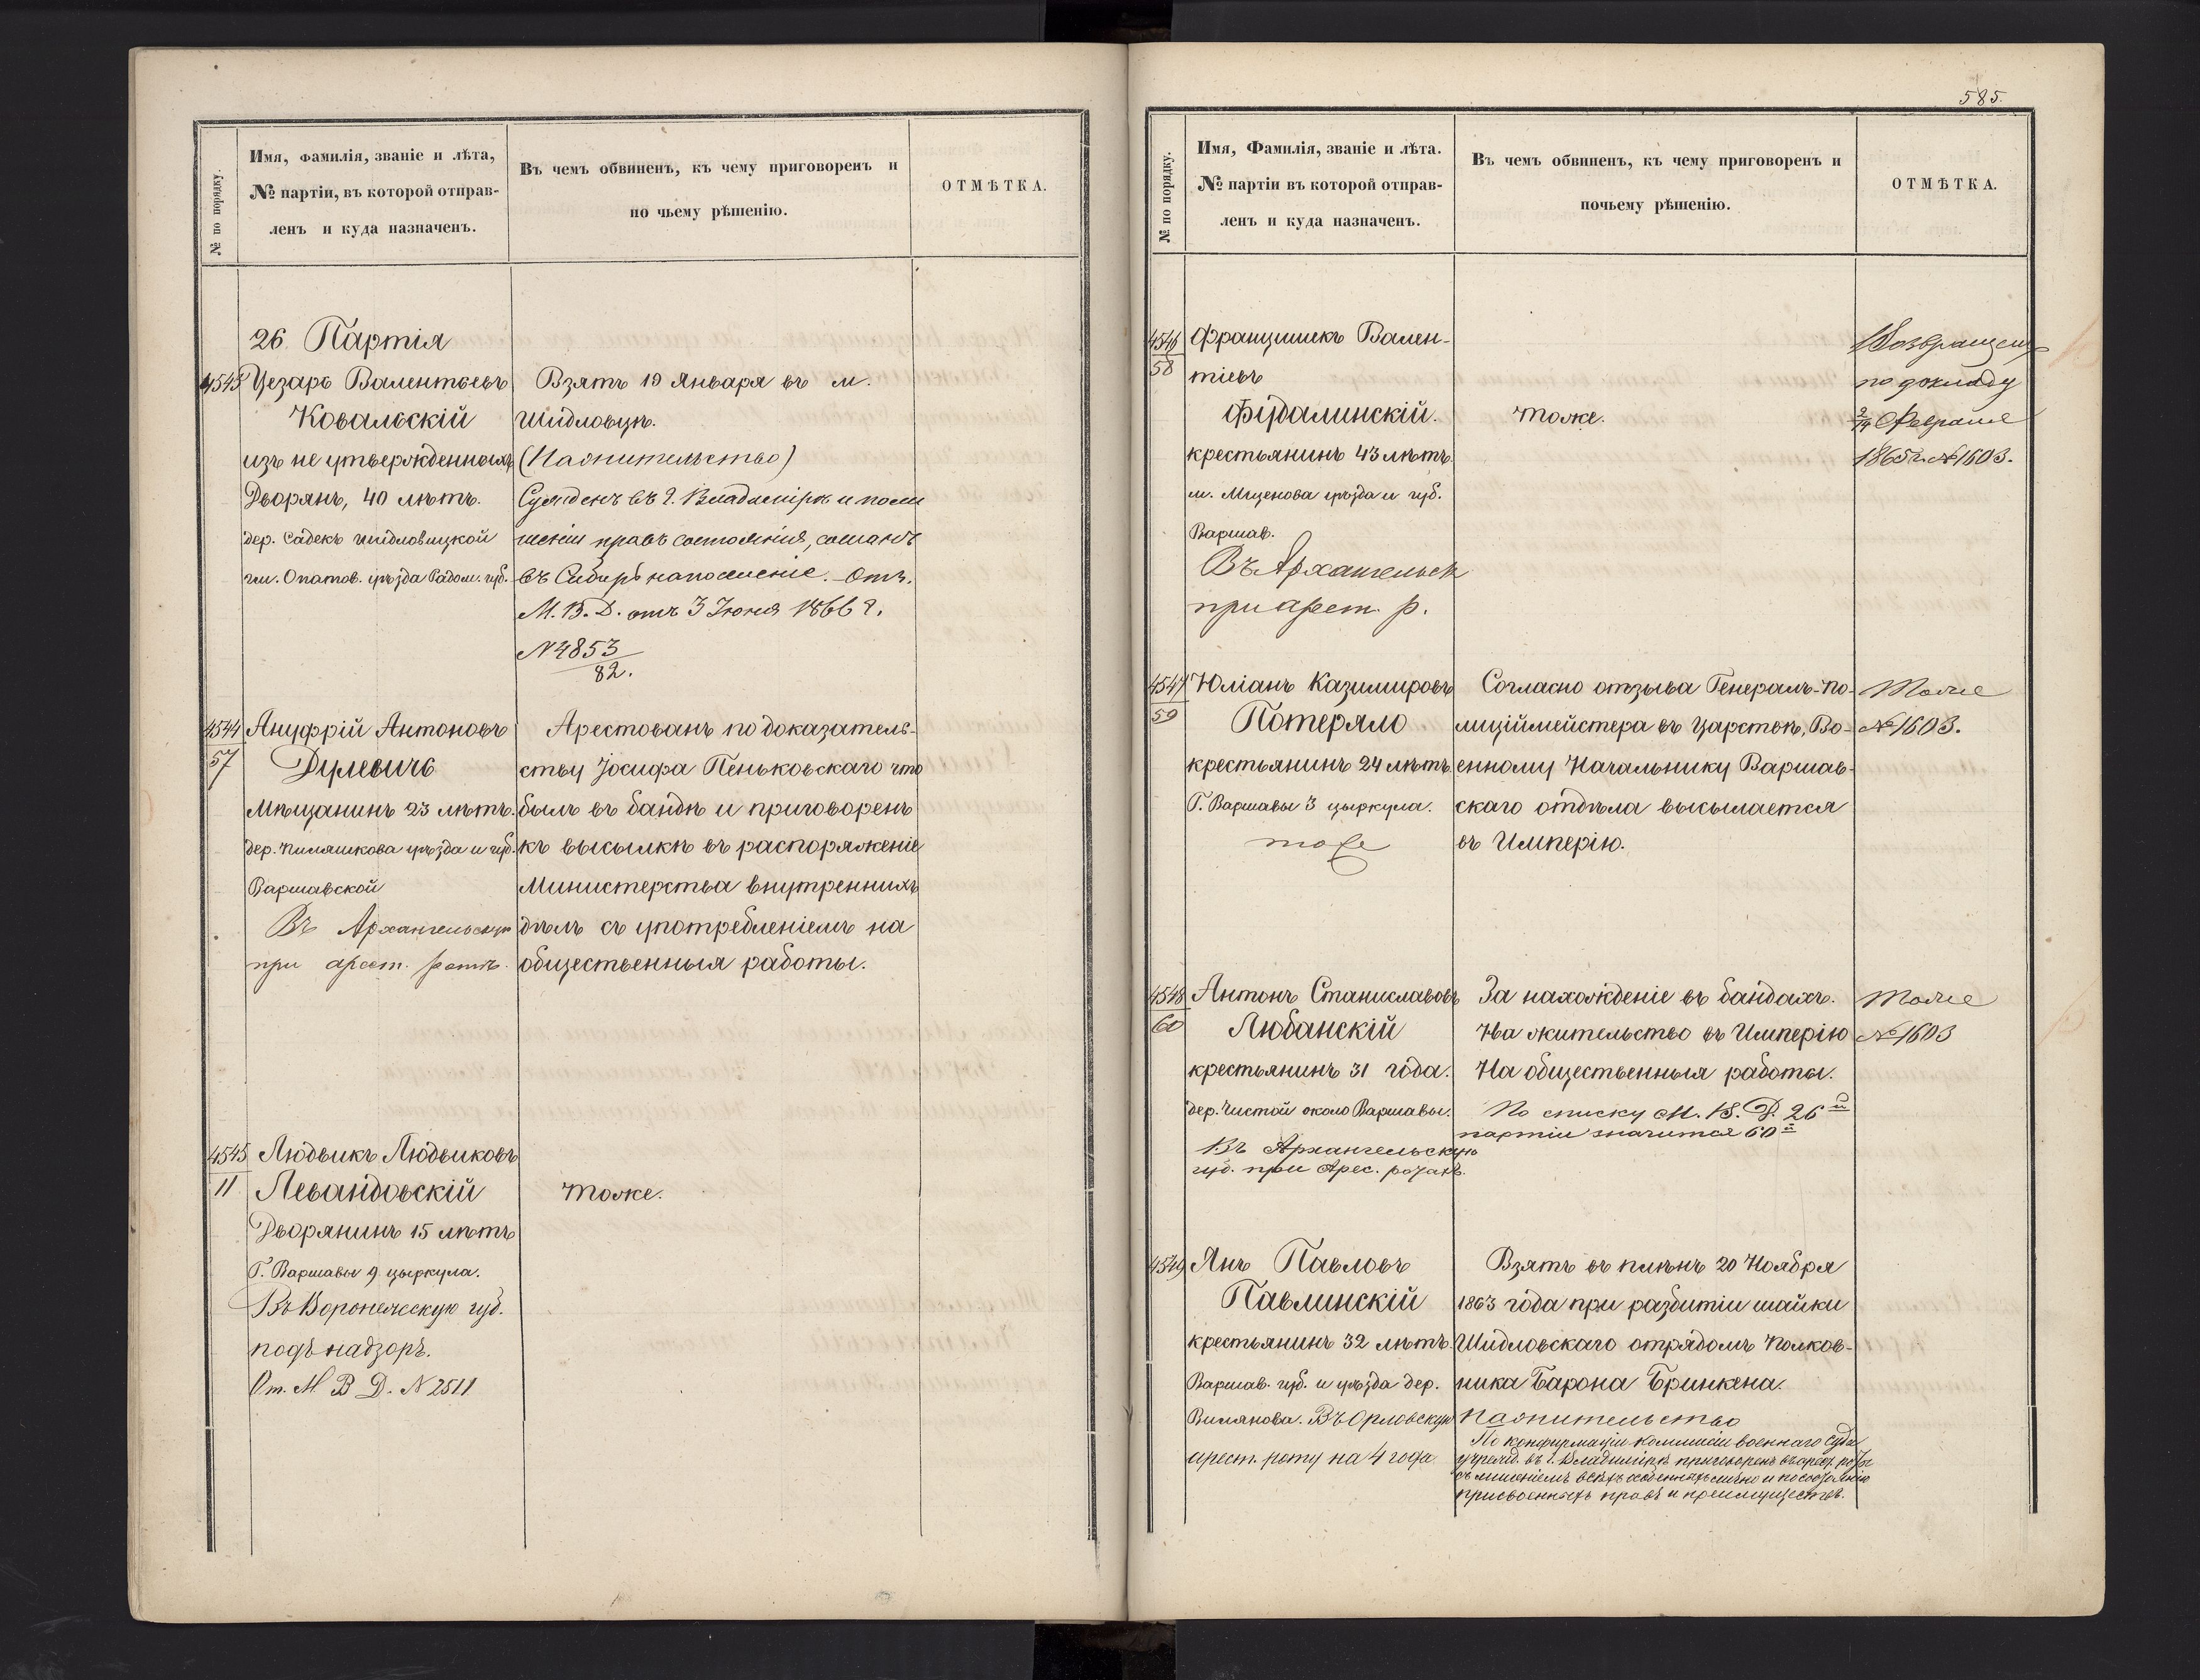 № по порядку.
Имя, фамилія, званіе и лѣта,
№ партіи, въ которой отправ-
ленъ и куда назначенъ.
Въ чемъ обвиненъ, къ чему приговоренъ и
по чьему рѣшенію.
ОТМѢТКА.
26 Партія
4543
Цезарь Валентьевъ
Ковальскій
изъ не утвержденныхъ
Дворянъ, 40 лѣтъ.
дер. Садекъ Шидловицкой
гм. Опатов. уѣзда Радом. губ.
Взятъ 19 Января въ м.
Шидловцѣ.
(На жительство)
Сужденъ въ г. Владимірѣ и по ли
шеніи правъ состоянія, сосланъ
въ Сибирь на поселеніе. Отн.
М. В. Д. отъ 3 Іюня 1866 г.
N 4853
82.
4544
57
Ануфрій Антоновъ
Дулевичъ
Мѣщанинъ 23 лѣтъ.
дер. Пиляшкова уѣзда и губ.
Варшавской
Въ Архангельскую
при арест. ротѣ.
Арестованъ по доказатель-
ству Іосифа Пеньковскаго что
былъ въ бандѣ и приговоренъ
къ высылкѣ въ распоряженіе
Министерства внутреннихъ
дѣлъ съ употребленіемъ на
общественныя работы.
4545
11
Людвикъ Людвиковъ
Левандовскій
Дворянинъ 15 лѣтъ
Г. Варшавы 9 цыркула.
Въ Воронежскую губ.
подъ надзоръ.
От. М В Д. N 2511
Тоже.
585.
№ по порядку.
Имя, Фамилія, званіе и лѣта.
№ партіи въ которой отправ-
ленъ и куда назначенъ.
Въ чемъ обвиненъ, къ чему приговоренъ и
почьему рѣшенію.
ОТМѢТКА.
4546
58
Францишекъ Вален-
тіевъ
Фирдалинскій.
крестьянинъ 43 лѣтъ.
м. Мщенова уѣзда и губ.
Варшав.
Въ Архангельск
при арест. р.
Тоже.
Возвращенъ
по докладу
2/14 Февраля
1865 г. № 1603.
4547
59
Юліанъ Казимировъ
Потеряло
крестьянинъ 24 лѣтъ.
Г. Варшавы 3 цыркула.
тоже
Согласно отзыва Генералъ-По-
лиціймейстера въ Царствѣ, Во-
енному Начальнику Варшав-
скаго отдѣла высылается
въ Имперію.
Тоже
№ 1603.
4548
60
Антонъ Станиславовъ
Любанскій
крестьянинъ 31 года.
дер. Чистой около Варшавы.
Въ Архангельскую
губ. при Арес. ротахъ.
За нахожденіе въ бандахъ.
На жительство въ Имперію
На общественныя работы.
По списку М. В. Д. 26й
партіи значится 60й
Тоже
№ 1603
4549
Янъ Павловъ
Павлинскій
крестьянинъ 32 лѣтъ.
Варшав. губ. и уѣзда дер.
Вилянова. Въ Орловскую
арест. роту на 4 года
Взятъ въ плѣнъ 20 Ноября
1863 года при разбитіи шайки
Шидловскаго отрядомъ Полков-
ника Барона Бринкена.
На жительство
По конфирмаціи коммисіи военнаго суда
учрежд. въ г. Владимірѣ приговоренъ въ арест. роты
съ лишеніемъ всѣхъ особенныхъ лично и по состоянію
присвоенныхъ правъ и преимуществъ.